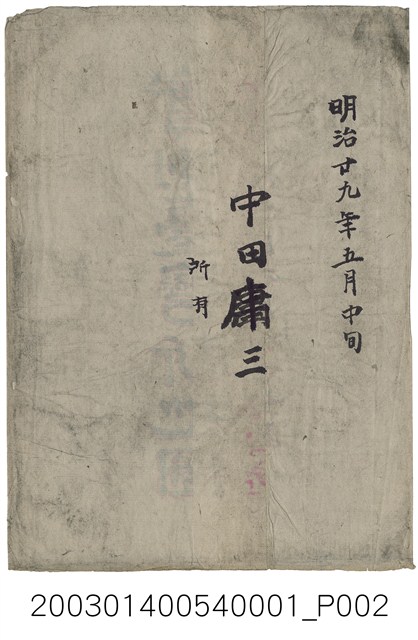 明治廿九年五月中旬
中田庸三
所有
200301400540001_P002